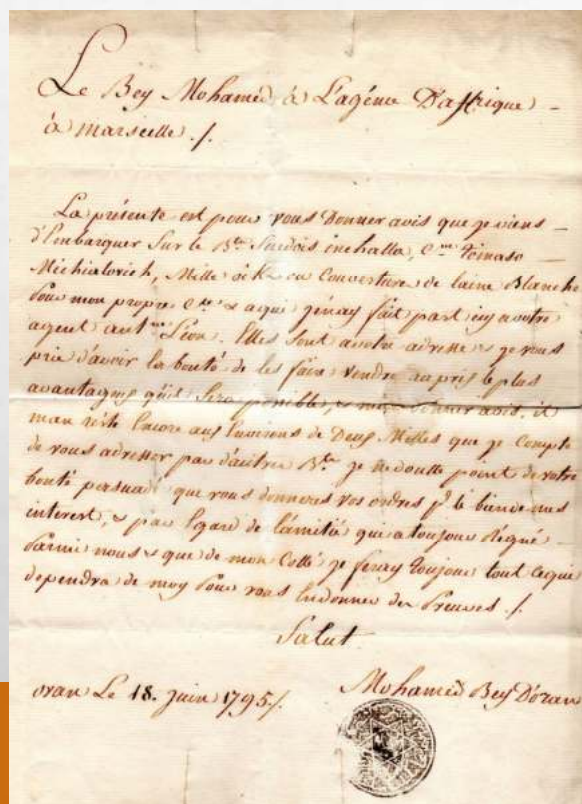 Le Bey Mohamed à L'agence D'affrique
à marseille ./.
La présente est pour vous Donner avis que je viens
d'Embarquer Sur le B.te Suedois inchalla, C.ne
Mille Couverture de laine Blanche
Pour mon propre C.te & a qui j'en ay fait part icy a votre
agent ant.ne Léon. Elles sont a votre adresse & je vous
prie d'avoir la bonté de les faire vendre au pris le plus
avantageux qu'il sera possible, & m'en donner avis. il
man reste Encore aux Environs de Deux Milles que je Compte
de vous adresser par d'autres B.te je ne doutte point de votre
bonté persuadé que vous donneres vos ordres p.r le bien de mes
interest, & par Egard de l'amitié qui a toujours Régné
Parmi nous & que de mon Cotté je feray toujour tout ce qui
dependra de moy Pour vous En donner des Preuves ./.
Salut
oran Le 18. Juin 1795 ./.
Mohamed Bey D'oran